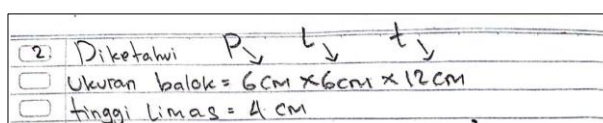 2. Diketahui P↘ L↘ t↘
Ukuran balok = 6 cm x 6 cm x 12 cm
tinggi Limas = 4 cm